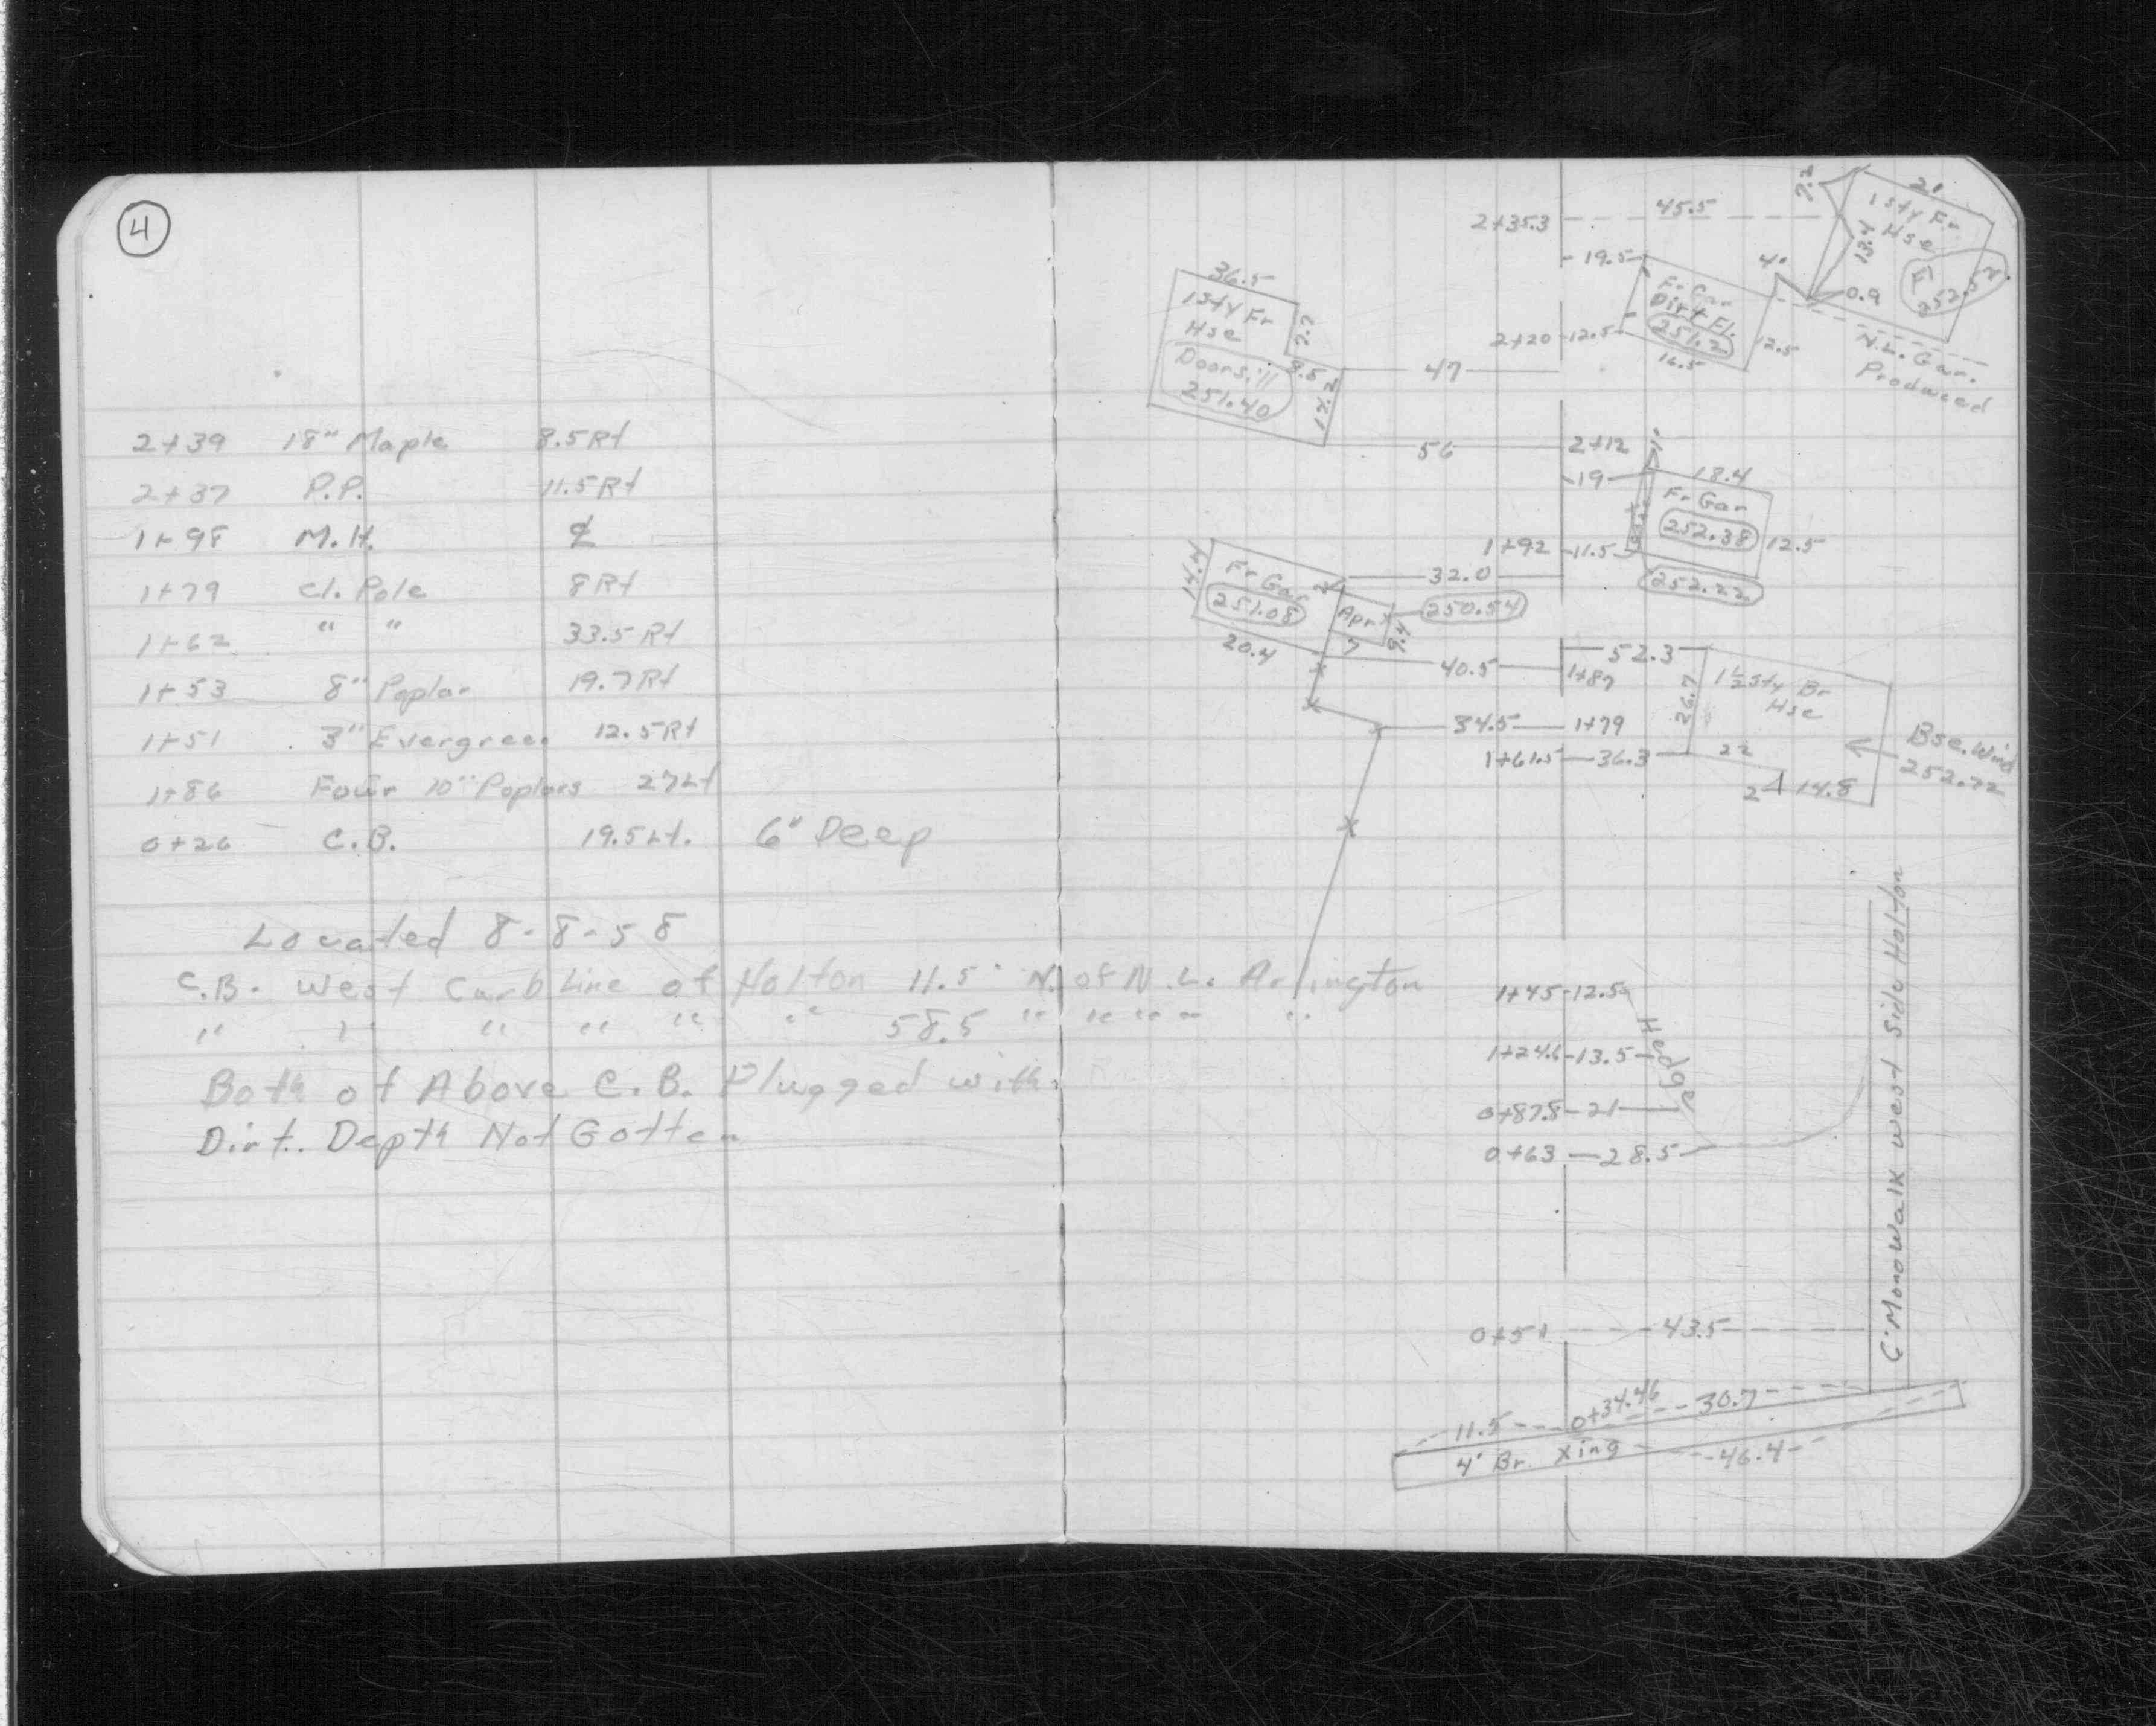 4
2+39 18" Maple 8.5 Rt
2+37 P.P. 11.5 Rt
1+98 M.H. ℄
1+79 Cl. Pole 8 Rt
1+62 " " 33.5 Rt
1+53 8" Poplar 19.7 Rt
1+51 3" Evergreen 12.5 Rt
1+86 Four 10" Poplars 27 Lt
0+26 C.B. 19.5 Lt. 6" Deep
Located 8-8-58
C.B. West Curb Line of Holton 11.5' N. of N.L. Arlington
" " " " " " 58.5 " " " " "
Both of Above C.B. Plugged with
Dirt. Depth Not Gotten
2+35.3 45.5
7.2
21
1 Sty Fr
Hse
13.4
4'
0.9
252.52
N.L. Gar.
Produced
19.5
Fr Gar
Dirt Fl.
251.2
2+20 12.5
16.5
12.5
36.5
1 Sty Fr
Hse
7.7
Doorsill
251.40
8.5
17.2
47
56 2+12
1'
19
18.4
Fr Gar
252.38
12.5
1+92 11.5
252.22
14.4
Fr Gar
251.08
2
32.0
Apr
250.54
9.4
7
20.4
40.5 1+87
52.3
1½ Sty Br
Hse
26.7
34.5 1+79
1+61.5 36.3
22
2 14.8
Bse. Wind
252.72
1+45 12.5
1+24.6 13.5
Hedge
0+87.8 21
0+63 28.5
6' Mono Walk West Side Holton
0+51 43.5
11.5 0+34.46 30.7
4' Br. Xing 46.4